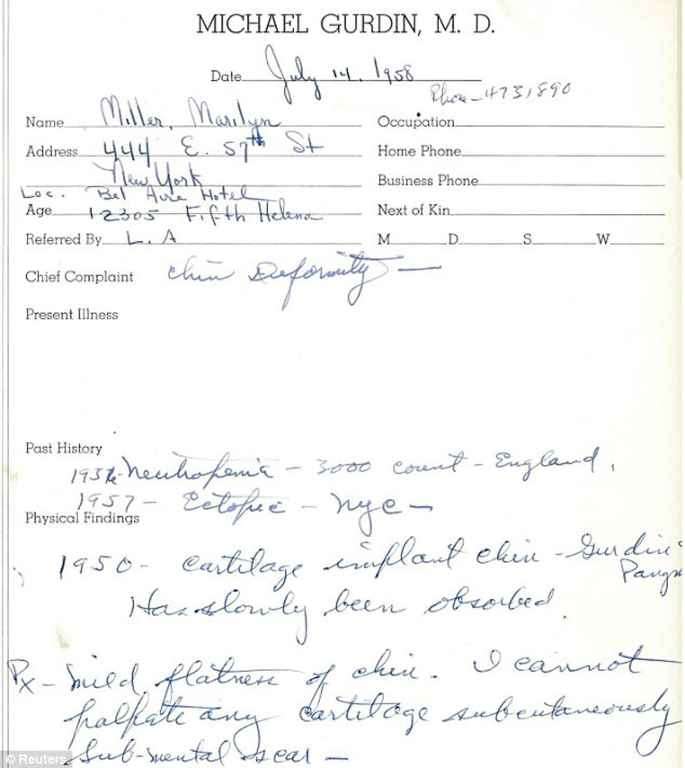 MICHAEL GURDIN, M. D.
Date July 14, 1958
Phone - 4731890
Name Miller, Marilyn
Occupation
Address 444 E. 57th St
Home Phone
New York
Business Phone
Loc. Bel Aire Hotel
Age 12305 Fifth Helena
Next of Kin
Referred By L. A
M D S W
Chief Complaint Chin Deformity —
Present Illness
Past History
Neutropenia - 3000 count - England.
1957 - Ectopic - NYC -
Physical Findings
1950 - cartilage implant chin - Gurdin
Has slowly been absorbed.
Px - mild flatness of chin. I cannot
palpate any cartilage subcutaneously
Sub-mental scar -
© Reuters